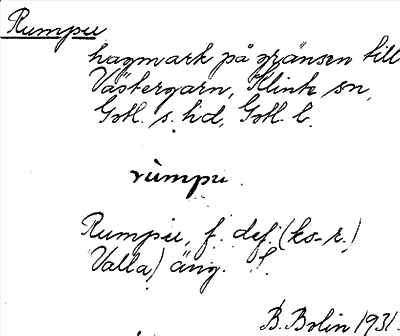 Rumpu
hagmark på gränsen till
Västergarn, Klinte sn,
Gotl. s. hd, Gotl. l.
rùmpu.
Rumpu, f. def. (ks. r.)
Valla) äng.
B. Bolin 1931.